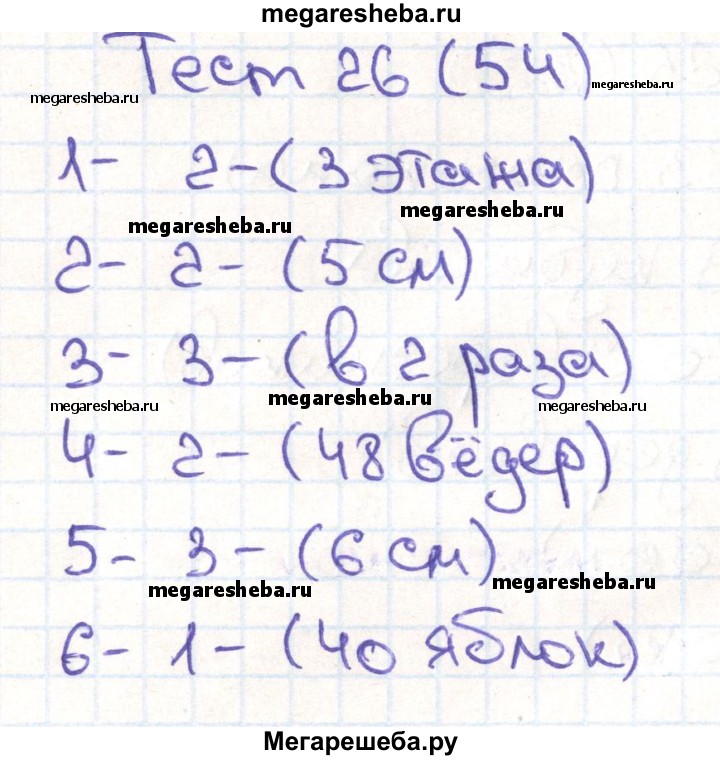 megaresheba.ru
Тест 26 (54)
megaresheba.ru
megaresheba.ru
1- 2-(3 этажа)
megaresheba.ru
megaresheba.ru
2- 2- (5 см)
3- 3-(в 2 раза)
megaresheba.ru
megaresheba.ru
megaresheba.ru
4- 2- (48 вёдер)
5- 3- (6 см)
megaresheba.ru
megaresheba.ru
6- 1- (40 яблок)
Мегарешеба.ру